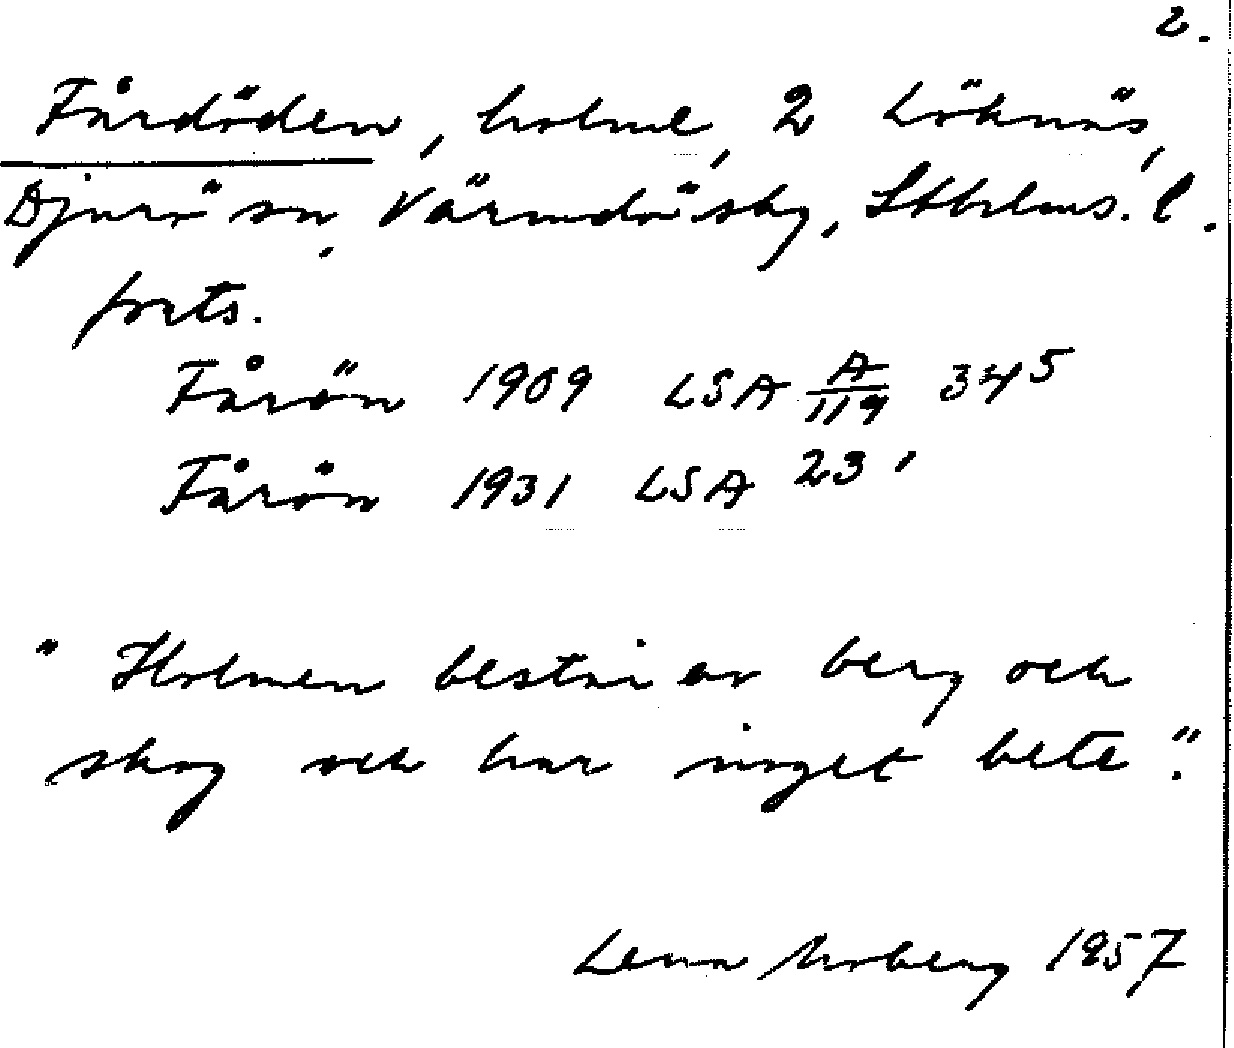 2.
Fårdöden, holme, 2 Löknäs,
Djurö sn, Värmdö skg, Sthlms. l.
forts.
Fårön 1909 LSA A/119 34⁵
Fårön 1931 LSA 23 '
"Holmen består av berg och
skog och har inget bete".
Lena Moberg 1957